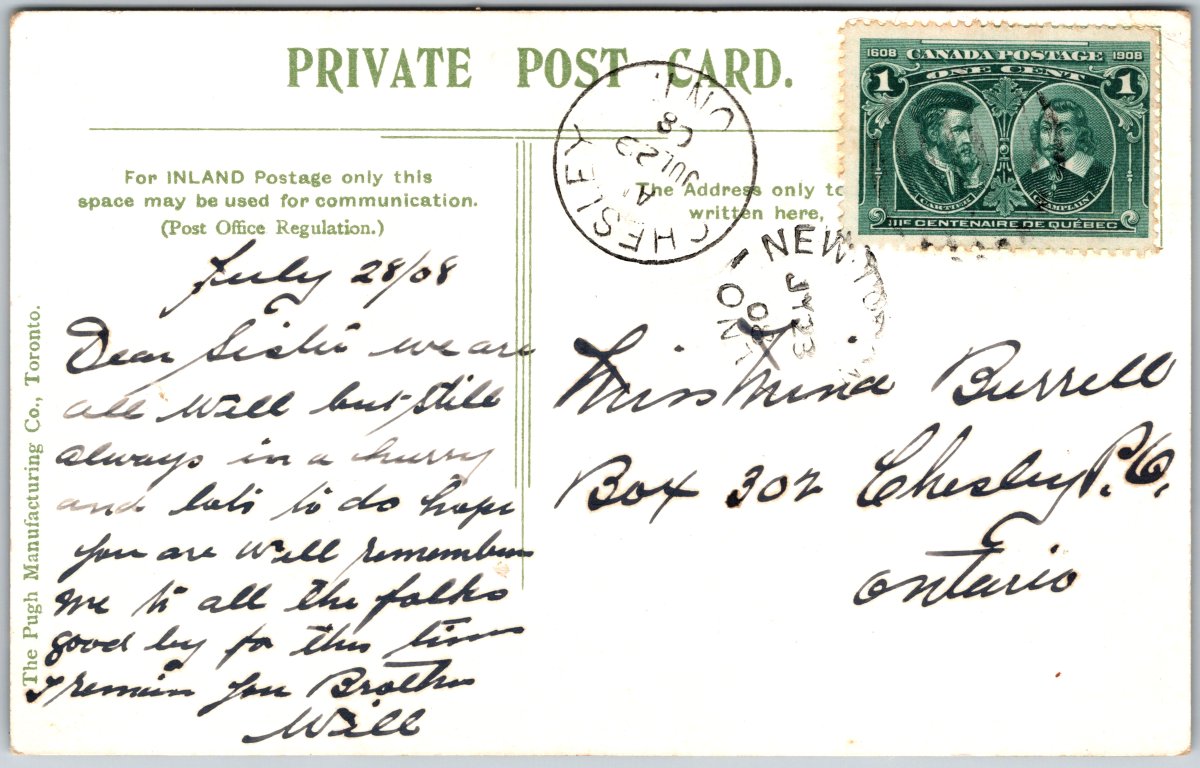 PRIVATE POST CARD.
1608 CANADA POSTAGE 1908
1 ONE CENT 1
CARTIER CHAMPLAIN
IIIE CENTENAIRE DE QUÉBEC
CHESLEY ONT.
A
JUL 23
08
NEW
JY 23
08
ONT
For INLAND Postage only this
space may be used for communication.
(Post Office Regulation.)
The Address only to
written here,
July 28/08
Dear Sister we are
all well but still
always in a hurry
and lots to do hope
you are well remember
me to all the folks
good by for this time
I remain your Brother
Will
Miss Mina Burrell
Box 302 Chesley P.O.
Ontario
The Pugh Manufacturing Co., Toronto.